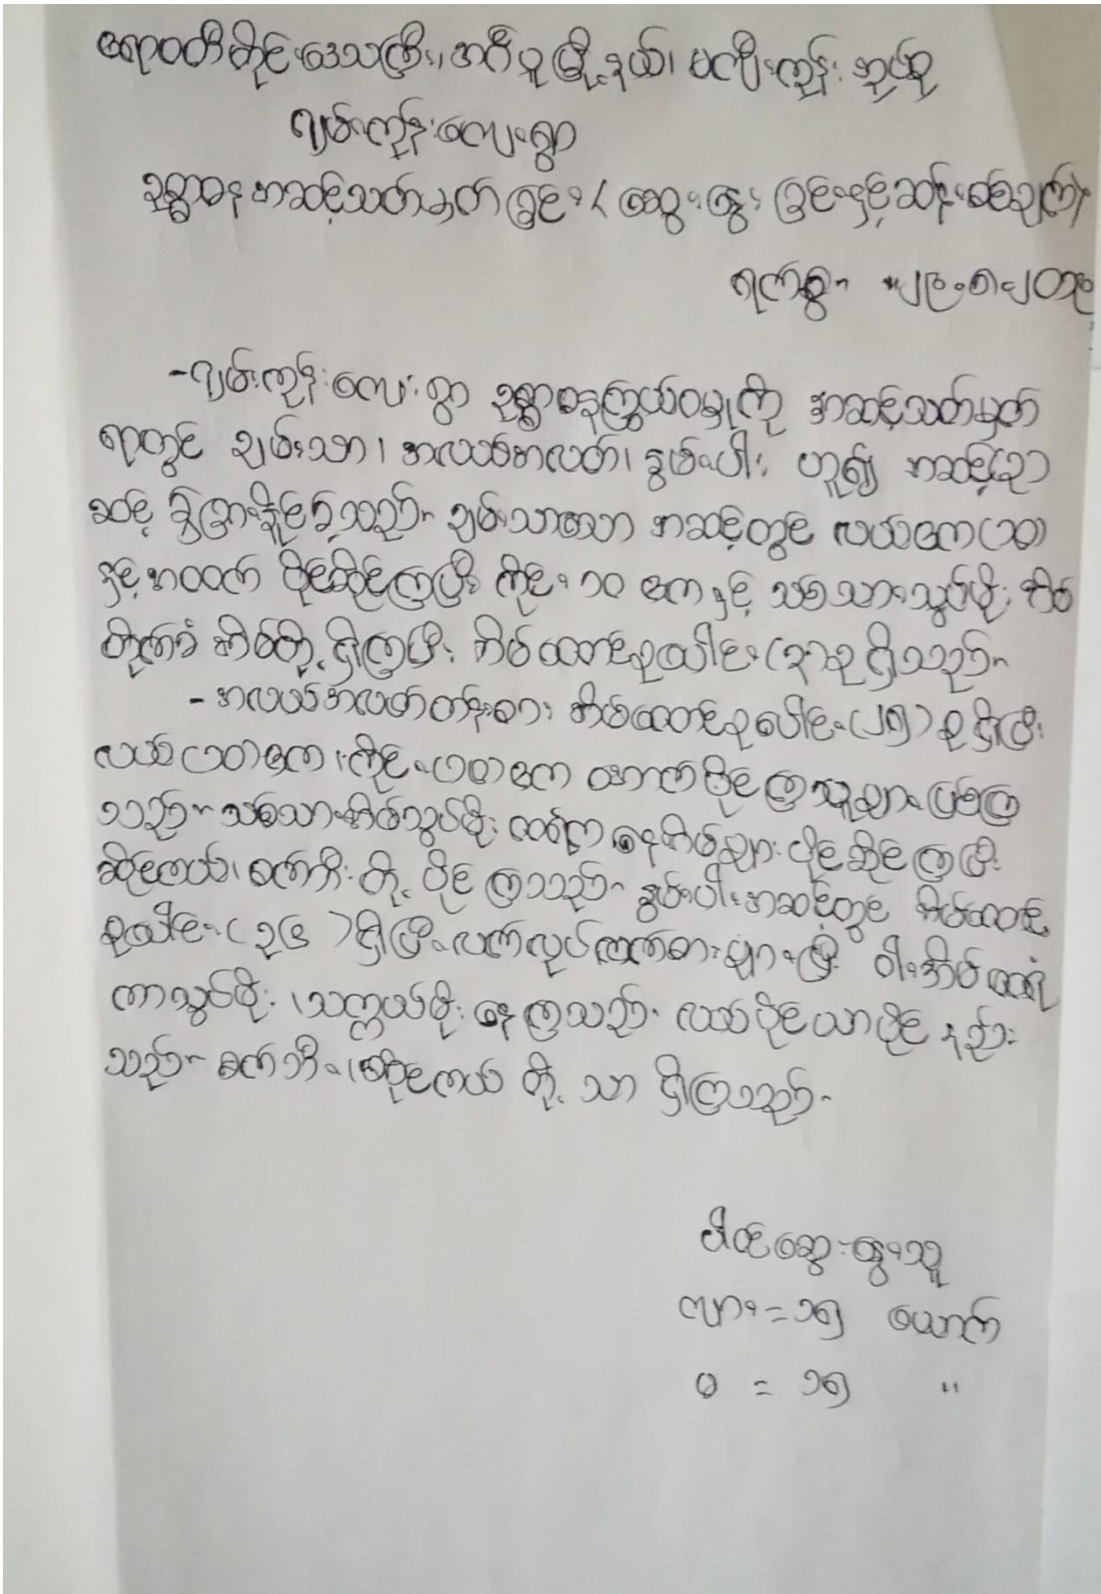 ဧရာဝတီတိုင်းဒေသကြီး၊ အင်္ဂပူမြို့နယ်၊ မကျီးကုန်း အုပ်စု
ဂျမ်းကုန်းလေးရွာ
ဥစ္စာဓန အဆင့်သတ်မှတ်ခြင်း ( ဆွေးနွေးခြင်းနှင့်ဆန်းစစ်ချက်)
ရက်စွဲ။
-ဂျမ်းကုန်းလေးရွာ ဥစ္စာဓနကြွယ်ဝမှုကို အဆင့်သတ်မှတ်
ရာတွင် ချမ်းသာ၊ အလယ်အလတ်၊ နွမ်းပါး ဟူ၍ အဆင့်(၃)
ဆင့် ခွဲခြားနိုင်ခဲ့သည်။ ချမ်းသာသော အဆင့်တွင် လယ်ဧက(၁၀)
နှင့်အထက် ပိုင်ဆိုင်ကြပြီး ကိုင်း ၁၀ ဧကနှင့် သစ်သားသွပ်မိုး အိမ်
တိုက်ခံ အိမ်တို့ရှိကြပြီး အိမ်ထောင်စုပေါင်း (၃)စု ရှိသည်။
- အလယ်အလတ်တန်းစား အိမ်ထောင်စုပေါင်း (၂၅) စု ရှိပြီး
လယ် (၁၀)ဧက၊ ကိုင်း(၁၀)ဧက အောက်ပိုင်ကြသူများ ဖြစ်ကြ
သည်။ သစ်သားအိမ်သွပ်မိုး နေအိမ်များ ပိုင်ဆိုင်ကြပြီး
ဆိုင်ကယ်၊ စက်ဘီးတို့ ပိုင်ကြသည်။ နွမ်းပါးအဆင့်တွင် အိမ်ထောင်
စုပေါင်း ( ၃၆ ) ရှိပြီး လက်လုပ်လက်စားများပြီး ဝါးအိမ်ထရံ
ကာသွပ်မိုး ၊သက္ကယ်မိုး နေကြသည်။ လယ်ပိုင်ယာပိုင် နည်း
သည်။ စက်ဘီး၊ဆိုင်ကယ် တို့ သာ ရှိကြသည်။
ပါဝင်ဆွေးနွေးသူ
ကျား = ၁၅ ယောက်
မ = ၁၅ "